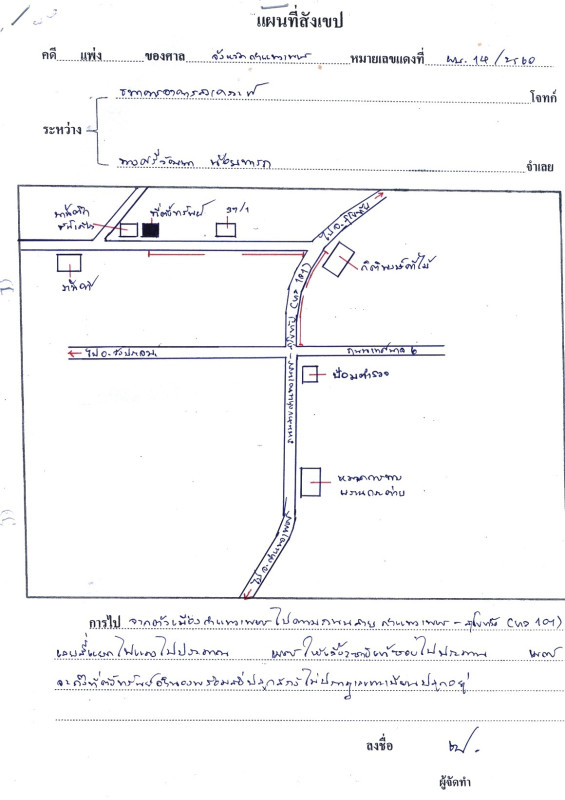 แผนที่สังเขป
คดี แพ่ง ของศาล จังหวัดกำแพงเพชร หมายเลขแดงที่ ผบ. 14 / 2560
ธนาคารอาคารสงเคราะห์ โจทก์
ระหว่าง
จำเลย
ที่ตั้งทรัพย์
37/1
ไป อ.สุโขทัย
กิตติพงษ์ค้าไม้
ถนนสายกำแพงเพชร - สุโขทัย (ทล 101)
ป้อมตำรวจ
หมวดการทาง
พรานกระต่าย
ไป อ.กำแพงเพชร
การไป จากตัวเมืองกำแพงเพชรไปตามถนนสาย กำแพงเพชร - สุโขทัย (ทล 101)
เลยสี่แยกไฟแดงไปประมาณ เมตร ให้เลี้ยวซ้าย ไปประมาณ เมตร
จะถึงที่ตั้งทรัพย์จำนองพร้อมสิ่งปลูกสร้างไม่ปรากฏเลขทะเบียนปลูกอยู่
ลงชื่อ
ผู้จัดทำ